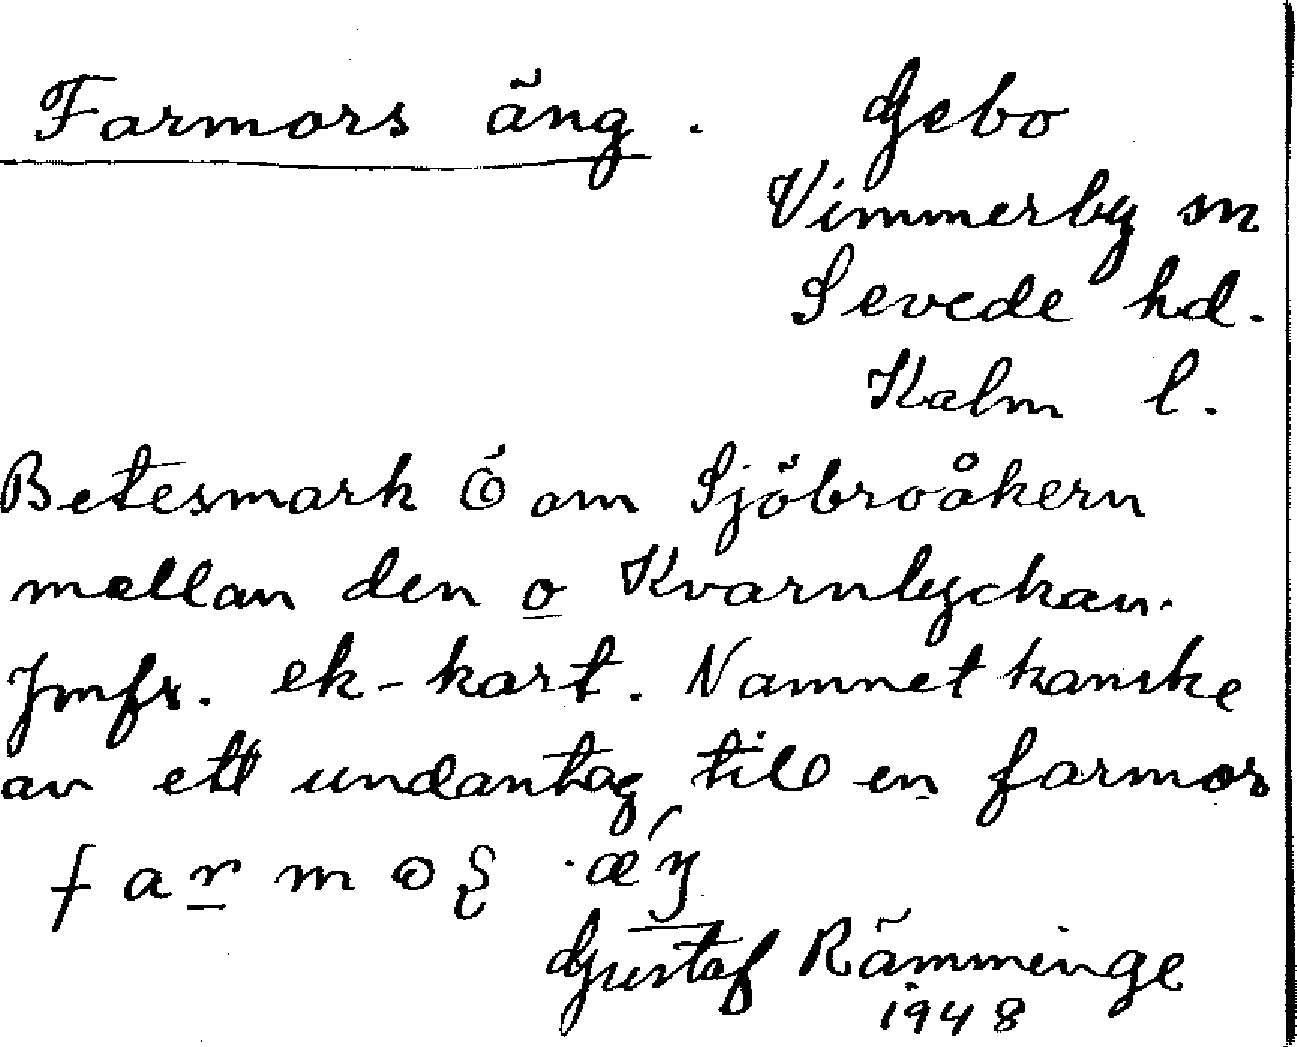 Farmors äng. Gebo
Vimmerby sn
Sevede hd.
Kalm l.
Betesmark Ö om Sjöbroåkern
mellan den o Kvarnlyckan.
Jmfr. ek-kart. Namnet kanske
av ett undantag till en farmor
farmo äŋ
Gustaf Rämminge
1948